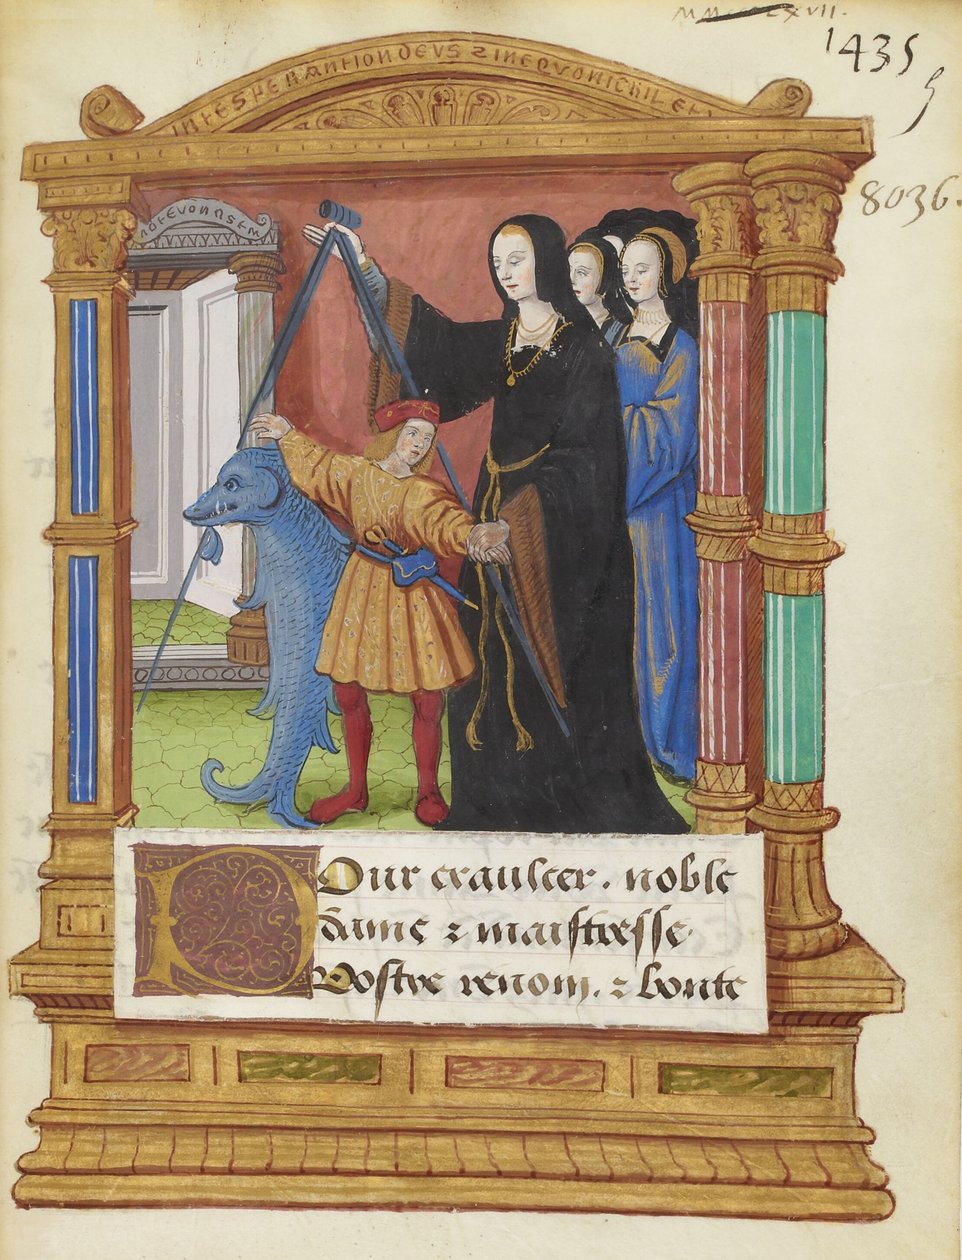 1435
5
8036.
INTESPERANTIONDEVS ZINEQVONICHIL ET
POur exaulcer . noble
dame ⁊ maistresse.
Vostre renom . ⁊ bonte